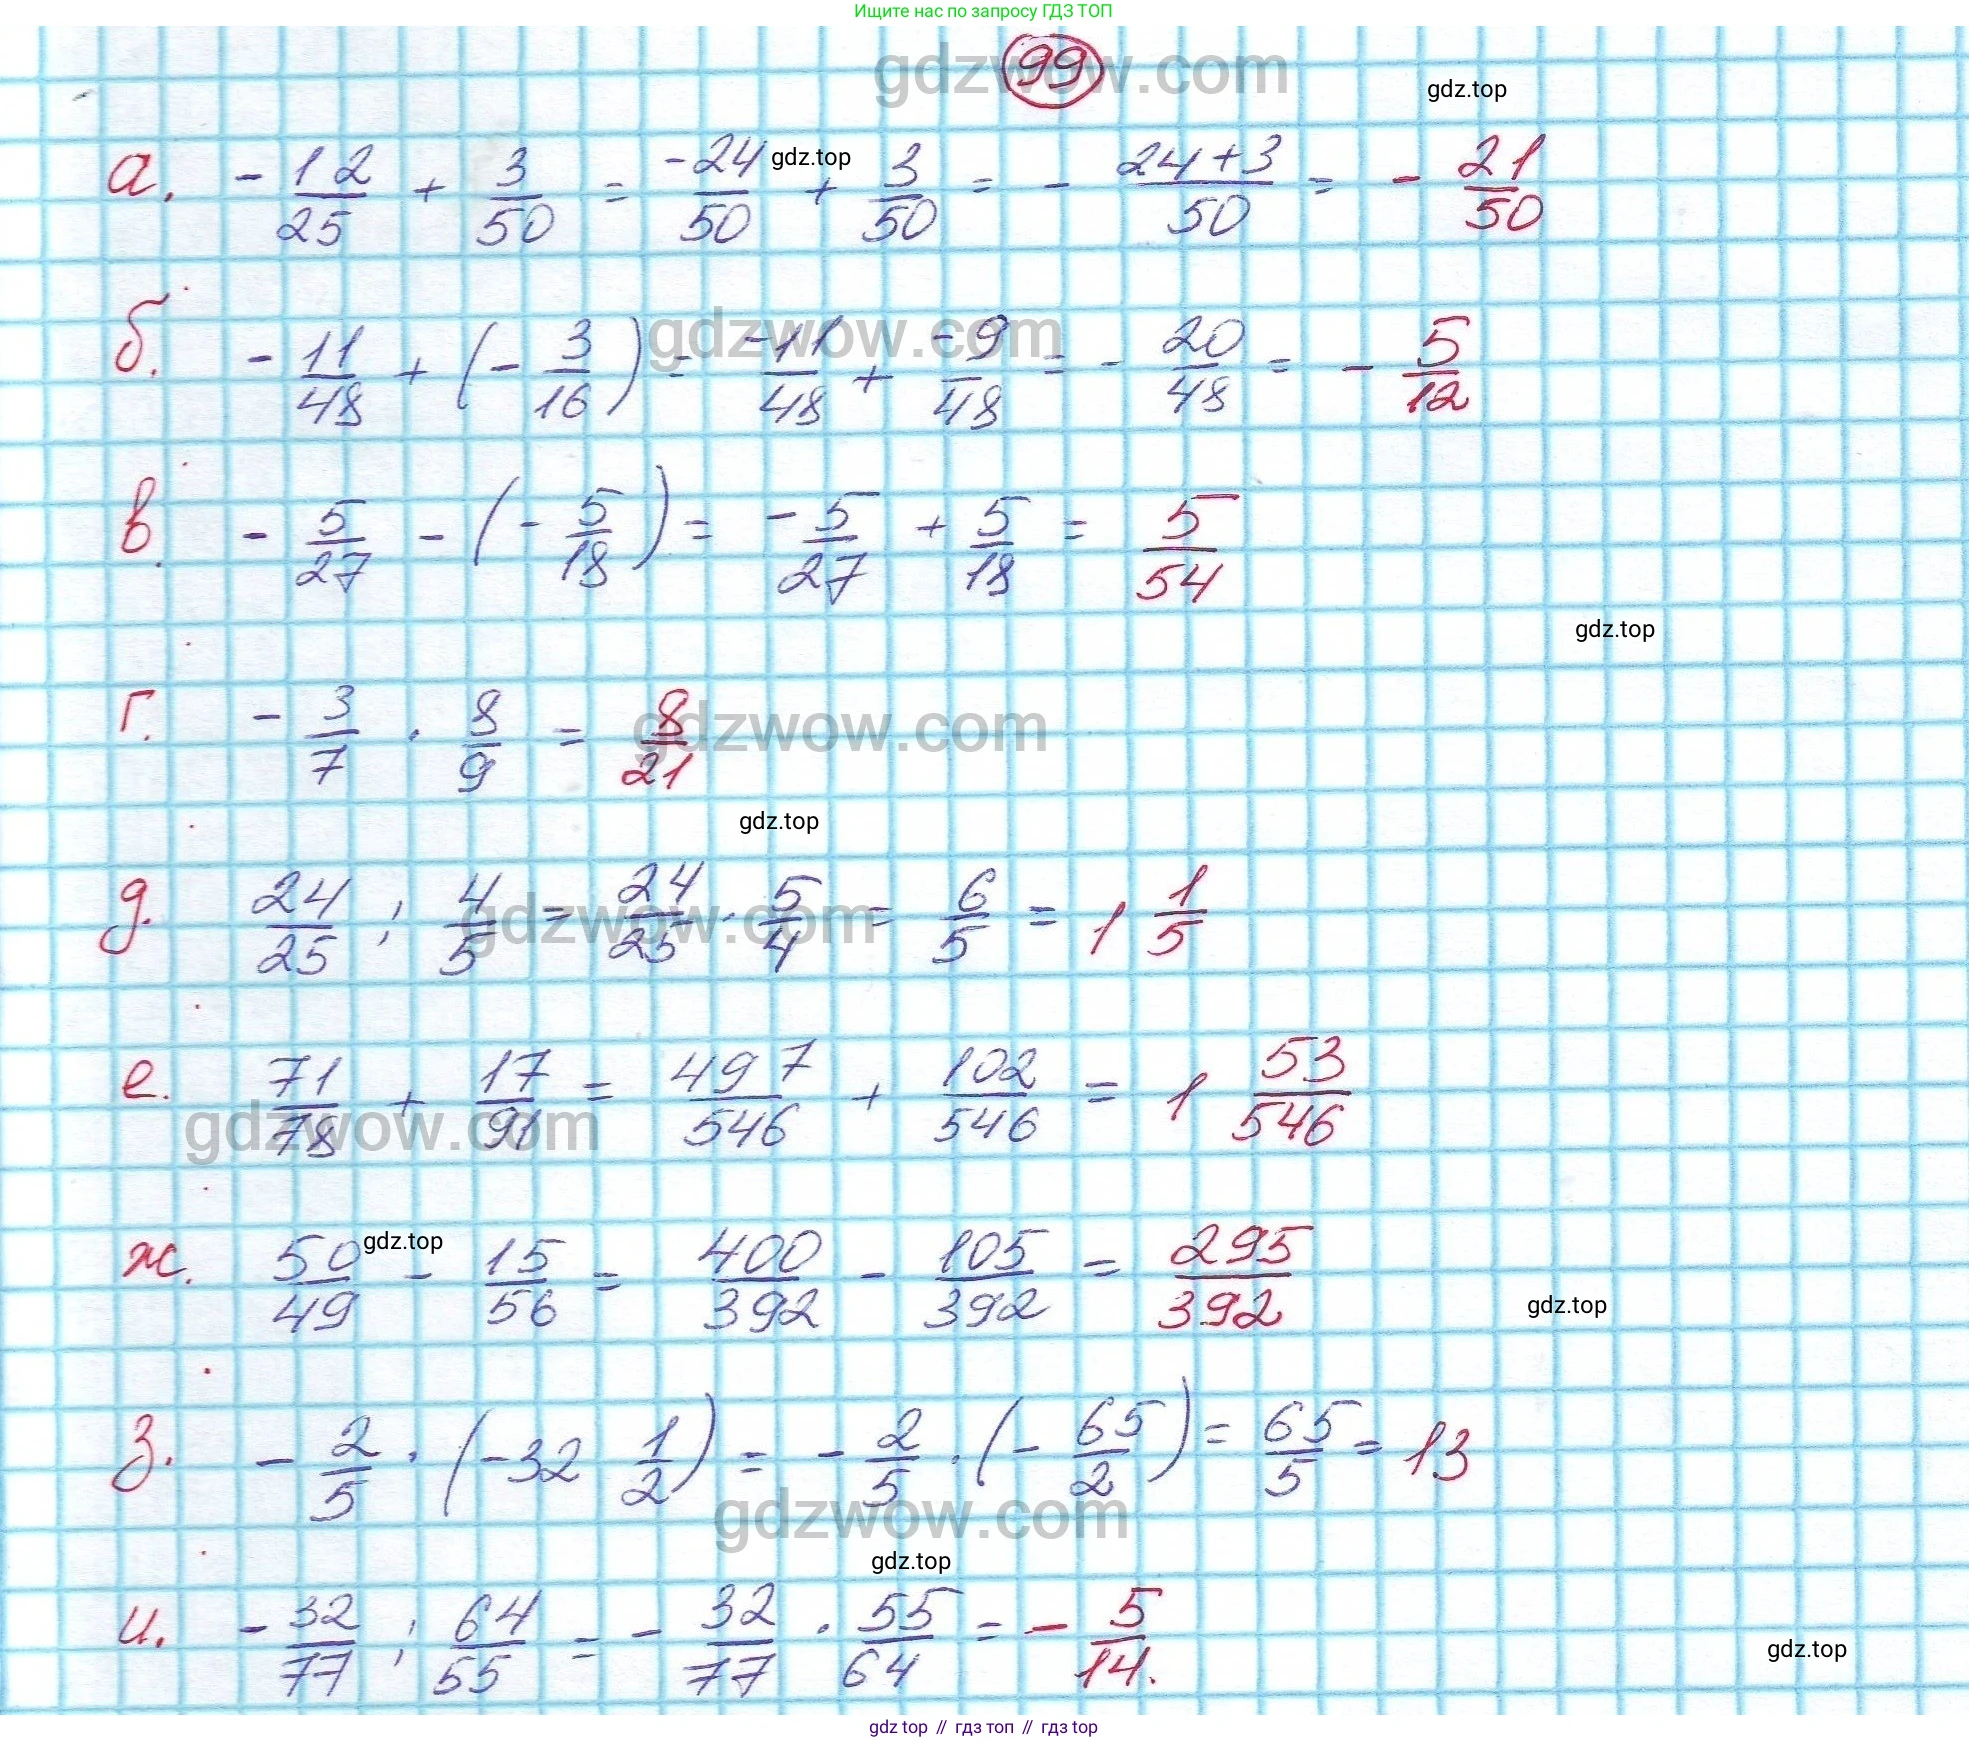 Ищите нас по запросу ГДЗ ТОП
gdzwow.com
99
gdz.top
а. -12/25 + 3/50 = -24/50 + 3/50 = - 24+3/50 = - 21/50
gdz.top
б. -11/48 + (-3/16) = -11/48 + -9/48 = - 20/48 = - 5/12
gdzwow.com
в. -5/27 - (-5/18) = -5/27 + 5/18 = 5/54
gdz.top
г. -3/7 · 8/9 = 8/21
gdzwow.com
gdz.top
д. 24/25 : 4/5 = 24/25 · 5/4 = 6/5 = 1 1/5
gdzwow.com
е. 71/78 + 17/91 = 497/546 + 102/546 = 1 53/546
gdzwow.com
ж. 50/49 - 15/56 = 400/392 - 105/392 = 295/392
gdz.top
gdz.top
з. -2/5 · (-32 1/2) = -2/5 · (-65/2) = 65/5 = 13
gdzwow.com
gdz.top
и. -32/77 : 64/55 = -32/77 · 55/64 = -5/14.
gdz.top
gdz top // гдз топ // гдз top